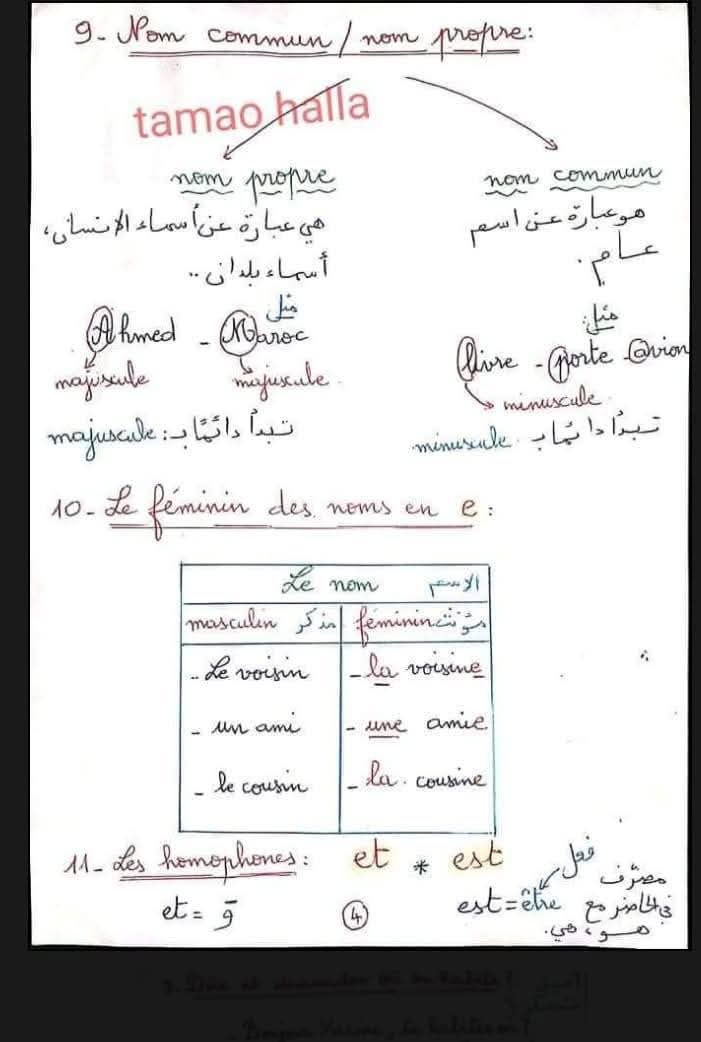 9- Nom commun / nom propre:
tamao halla
nom propre
هي عبارة عن أسماء الإنسان،
أسماء بلدان ..
مثل
Ahmed - Maroc
majuscule majuscule.
تبدأ دائمًا بـ: majuscule
nom commun
هو عبارة عن اسم
عام.
مثل:
livre - porte - avion
minuscule
تبدأ دائمًا بـ minuscule.
10- Le féminin des noms en e:
Le nom الاسم
masculin مذكر féminin مؤنث
- Le voisin - la voisine
- un ami - une amie.
- le cousin - la cousine
11- Les homophones: et * est
et = و
4
est = être
فعل
مصرّف
في الحاضر مع
هو، هي.